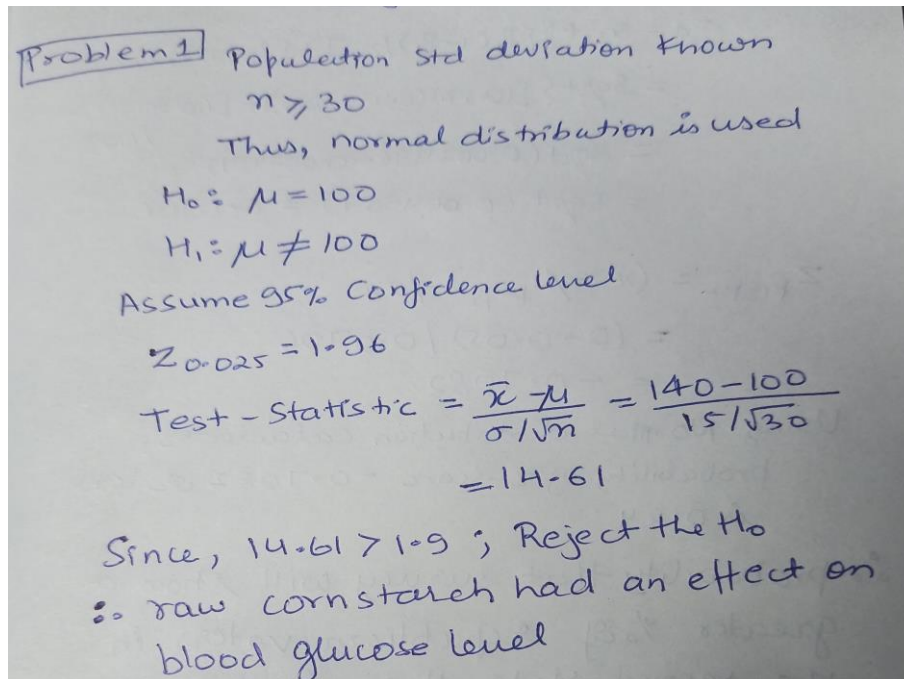 Problem 1 Population std deviation known
n ≥ 30
Thus, normal distribution is used
H₀: μ = 100
H₁: μ ≠ 100
Assume 95% Confidence level
Z₀.₀₂₅ = 1.96
Test-Statistic = (x̄ - μ)/(σ/√n) = (140-100)/(15/√30)
= 14.61
Since, 14.61 > 1.9 ; Reject the H₀
∴ raw cornstarch had an effect on
blood glucose level